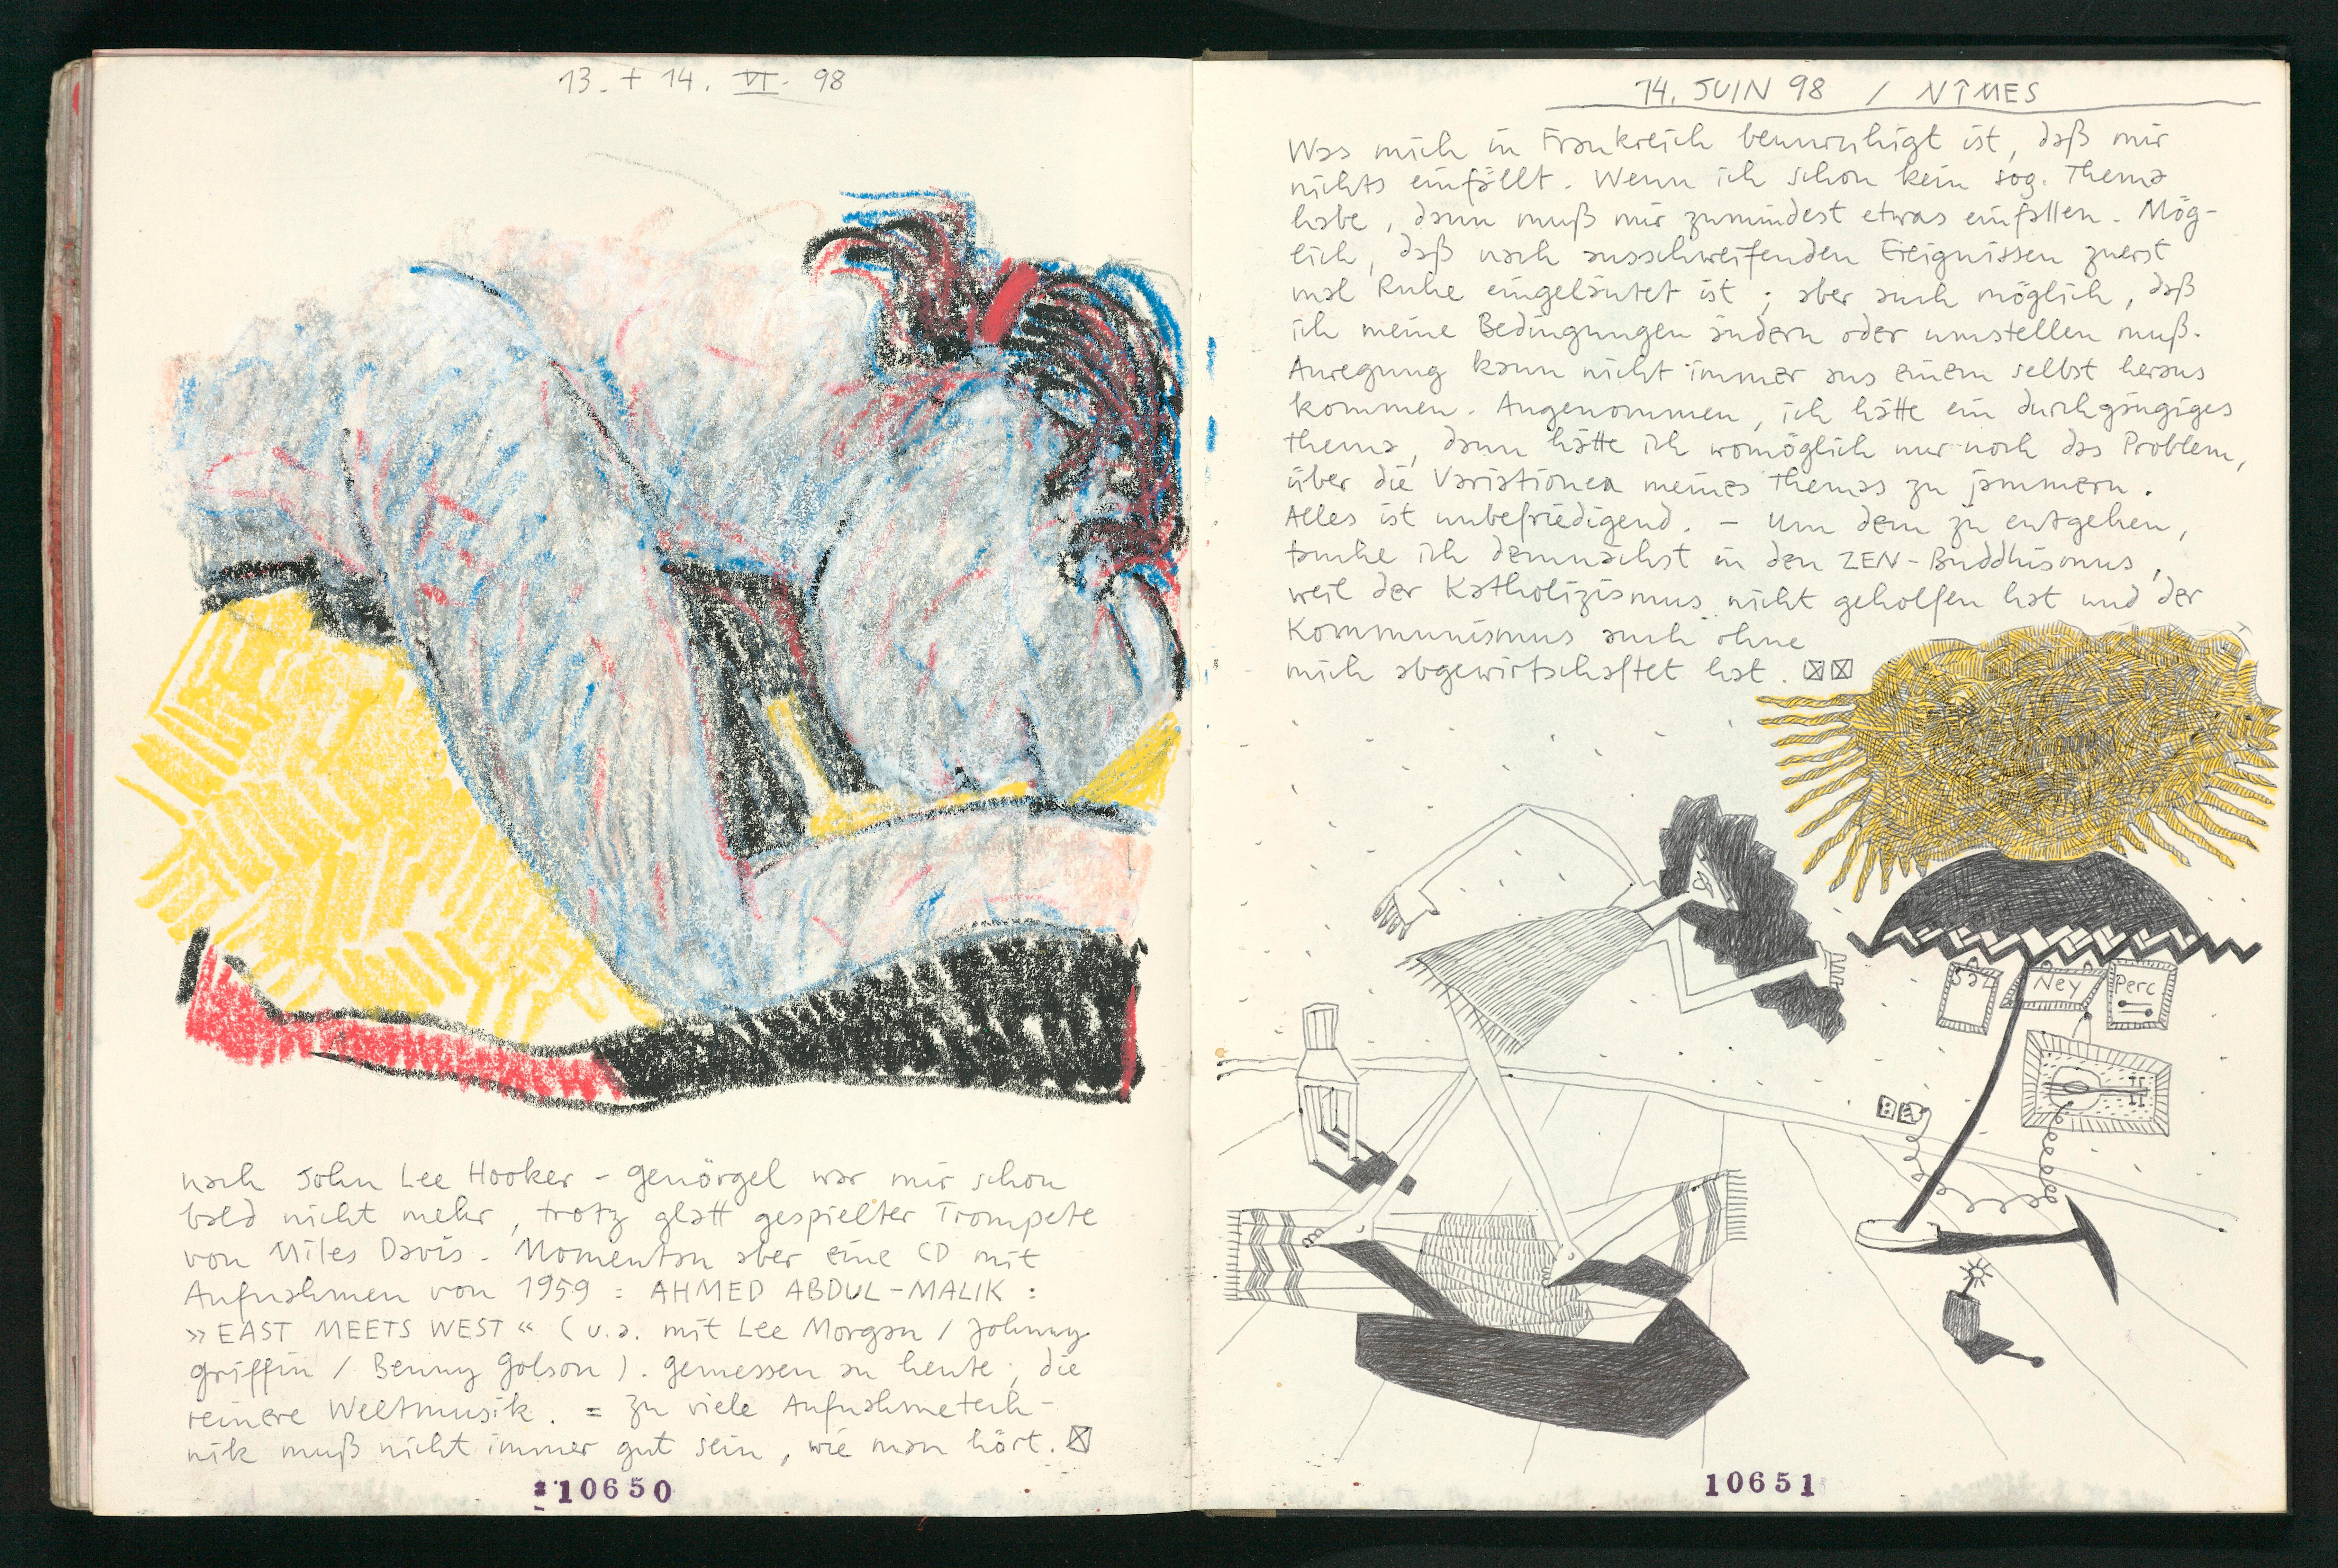 13. + 14. VI. 98
nach John Lee Hooker - genörgel war mir schon
bald nicht mehr, trotz glatt gespielter Trompete
von Miles Davis. Momentan aber eine CD mit
Aufnahmen von 1959 : AHMED ABDUL-MALIK :
»EAST MEETS WEST« (u.a. mit Lee Morgan / Johnny
Griffin / Benny Golson). gemessen an heute, die
reinere Weltmusik. = zu viele Aufnahmetech-
nik muß nicht immer gut sein, wie man hört.
10650
14. JUIN 98 / NÎMES
Was mich in Frankreich beunruhigt ist, daß mir
nichts einfällt. Wenn ich schon kein sog. Thema
habe, dann muß mir zumindest etwas einfallen. Mög-
lich, daß nach ausschweifenden Ereignissen zuerst
mal Ruhe eingeläutet ist; aber auch möglich, daß
ich meine Bedingungen ändern oder umstellen muß.
Anregung kann nicht immer aus einem selbst heraus
kommen. Angenommen, ich hätte ein durchgängiges
Thema, dann hätte ich womöglich nur noch das Problem,
über die Variationen meines Themas zu jammern.
Alles ist unbefriedigend. - Um dem zu entgehen,
tauche ich demnächst in den ZEN-Buddhismus,
weil der Katholizismus nicht geholfen hat und der
Kommunismus auch ohne
mich abgewirtschaftet hat.
Ney
Perc
10651